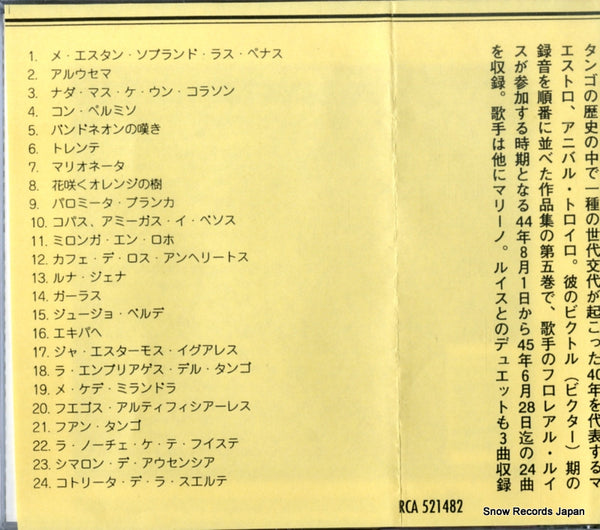 1. メ・エスタン・ソブランド・ラス・ペナス
2. アルウセマ
3. ナダ・マス・ケ・ウン・コラソン
4. コン・ペルミソ
5. バンドネオンの嘆き
6. トレンテ
7. マリオネータ
8. 花咲くオレンジの樹
9. パロミータ・ブランカ
10. コパス、アミーガス・イ・ベソス
11. ミロンガ・エン・ロホ
12. カフェ・デ・ロス・アンヘリートス
13. ルナ・ジェナ
14. ガーラス
15. ジュージョ・ベルデ
16. エキパヘ
17. ジャ・エスターモス・イグアレス
18. ラ・エンプリアゲス・デル・タンゴ
19. メ・ケデ・ミランドラ
20. フエゴス・アルティフィシアーレス
21. フアン・タンゴ
22. ラ・ノーチェ・ケ・テ・フイステ
23. シマロン・デ・アウセンシア
24. コトリータ・デ・ラ・スエルテ
タンゴの歴史の中で一種の世代交代が起こった40年を代表するマ
エストロ、アニバル・トロイロ。彼のビクトル（ビクター）期の
録音を順番に並べた作品集の第五巻で、歌手のフロレアル・ルイ
スが参加する時期となる44年8月1日から45年6月28日迄の24曲
を収録。歌手は他にマリーノ。ルイスとのデュエットも3曲収録
RCA 521482
Snow Records Japan